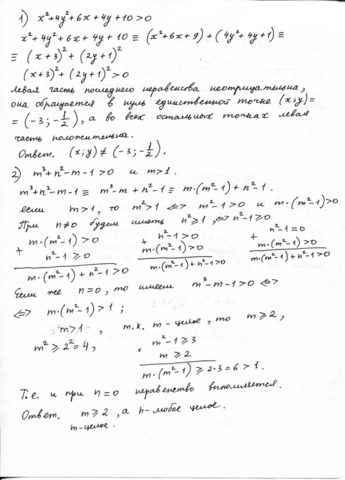 1) x²+4y²+6x+4y+10>0
x²+4y²+6x+4y+10 ≡ (x²+6x+9)+(4y²+4y+1) ≡
≡ (x+3)²+(2y+1)²
(x+3)²+(2y+1)²>0
Левая часть последнего неравенства неотрицательна,
она обращается в нуль единственной точке (x;y)=
=(-3;-1/2), а во всех остальных точках левая
часть положительна.
Ответ. (x;y)≠(-3;-1/2).
2) m³+n²-m-1>0 и m>1.
m³+n²-m-1 ≡ m³-m+n²-1 ≡ m·(m²-1)+n²-1.
если m>1, то m²>1 ⇔ m²-1>0 и m·(m²-1)>0
При n≠0 будем иметь n²≥1, ⇔ n²-1≥0
+ m·(m²-1)>0 + n²-1>0 + n²-1=0
n²-1≥0 m·(m²-1)>0 m·(m²-1)>0
m·(m²-1)+n²-1>0 m·(m²-1)+n²-1>0 m·(m²-1)+n²-1>0
Если же n=0, то имеем m³-m-1>0 ⇔
⇔ m·(m²-1)>1;
m>1, т.к. m-целое, то m≥2,
m²≥2²=4, × m²-1≥3
m≥2
m·(m²-1)≥2·3=6>1.
Т.е. и при n=0 неравенство выполняется.
Ответ. m≥2, а n-любое целое.
m-целое.